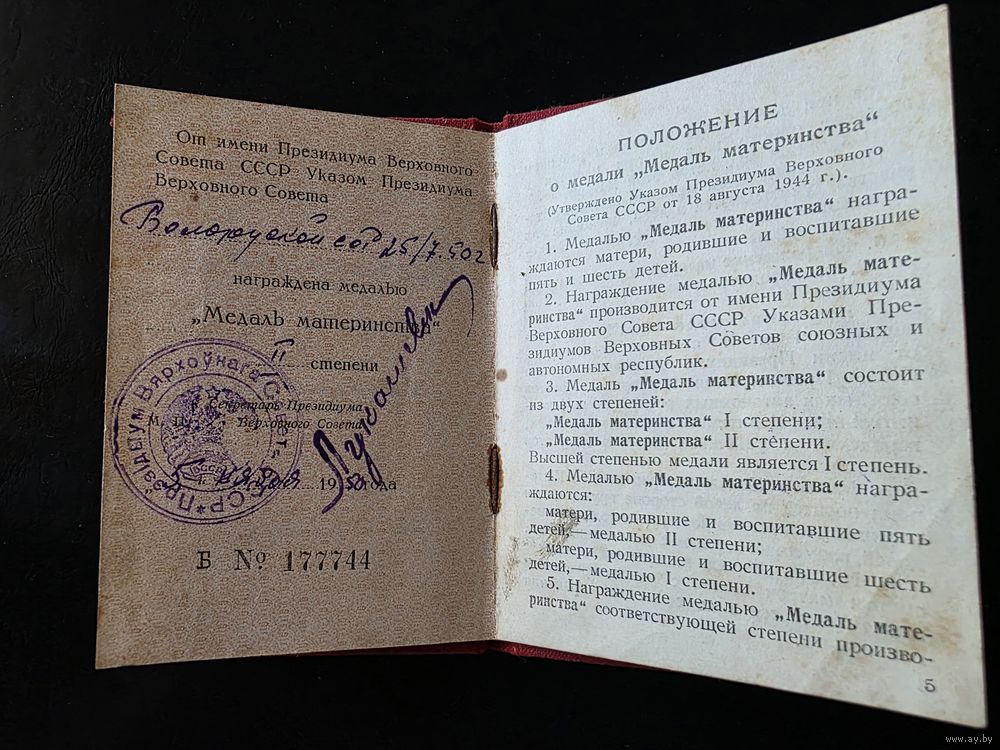 От имени Президиума Верховного
Совета СССР Указом Президиума
Верховного Совета
Белорусской ССР 25/7.50г
награждена медалью
„Медаль материнства“
II степени
Секретарь Президиума
М. П. Верховного Совета
19 50 года
Прэзідыум Вярхоўнага Савета
БССР
Б № 177744
ПОЛОЖЕНИЕ
о медали „Медаль материнства“
(Утверждено Указом Президиума Верховного
Совета СССР от 18 августа 1944 г.).
1. Медалью „Медаль материнства“ награ-
ждаются матери, родившие и воспитавшие
пять и шесть детей.
2. Награждение медалью „Медаль мате-
ринства“ производится от имени Президиума
Верховного Совета СССР Указами Пре-
зидиумов Верховных Советов союзных и
автономных республик.
3. Медаль „Медаль материнства“ состоит
из двух степеней:
„Медаль материнства“ I степени;
„Медаль материнства“ II степени.
Высшей степенью медали является I степень.
4. Медалью „Медаль материнства“ награ-
ждаются:
матери, родившие и воспитавшие пять
детей,—медалью II степени;
матери, родившие и воспитавшие шесть
детей,—медалью I степени.
5. Награждение медалью „Медаль мате-
ринства“ соответствующей степени произво-
5
www.ay.by